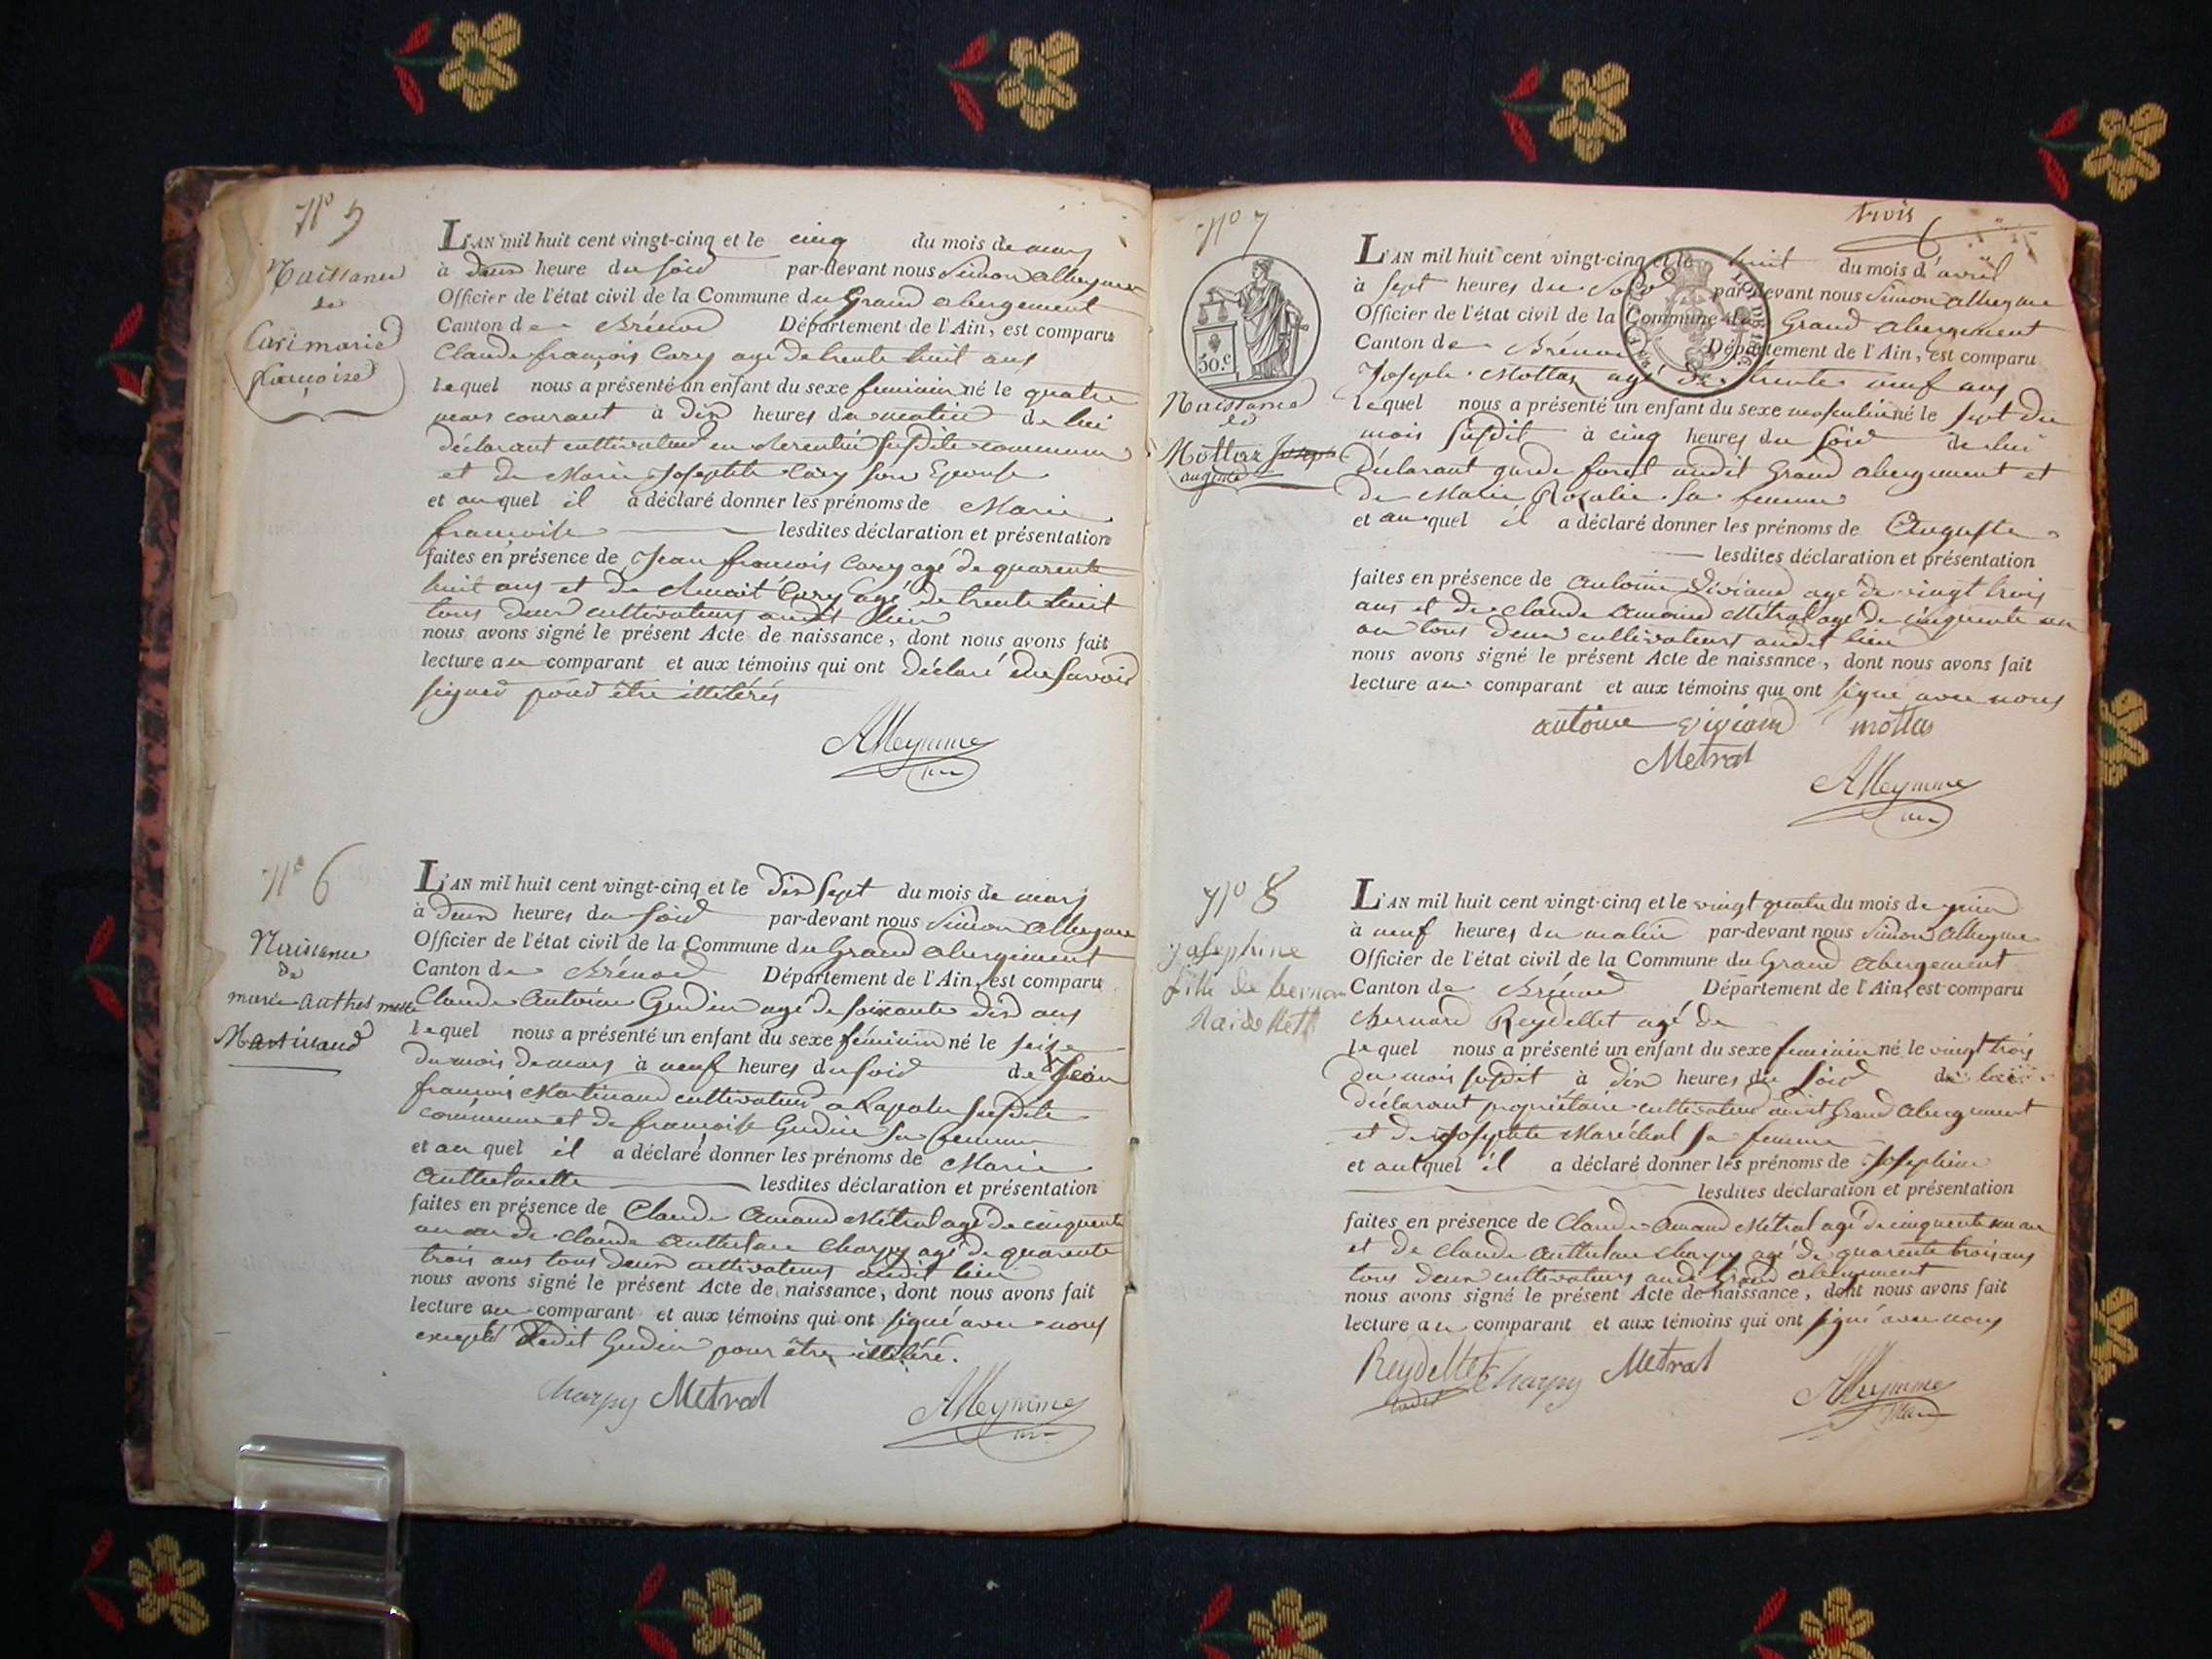 N° 5
Naissance
de
Cari marie
francoise
L'AN mil huit cent vingt-cinq et le cinq du mois de mars
à deux heure du soir par-devant nous Simon Alleymme
Officier de l'état civil de la Commune du Grand abergement
Canton de Brénod Département de l'Ain, est comparu
Claude françois Cary agé de trente huit ans
lequel nous a présenté un enfant du sexe feminin né le quatre
mars courant à dix heures du matin de lui
déclarant cultivateur en susdite commune
et de Marie Josephte Cary son Epouse
et au quel il a déclaré donner les prénoms de Marie
francoise lesdites déclaration et présentation
faites en présence de Jean françois Cary agé de quarente
huit ans et de Benoit Cary agé de trente huit
tous deux cultivateurs audit lieu
nous avons signé le présent Acte de naissance, dont nous avons fait
lecture au comparant et aux témoins qui ont déclaré ne savoir
signer pour être illitérés
Alleymme
N° 6
Naissance
de
marie Anthelmette
Martinand
L'AN mil huit cent vingt-cinq et le dix sept du mois de mars
à deux heures du soir par-devant nous Simon Alleymme
Officier de l'état civil de la Commune du Grand abergement
Canton de Brénod Département de l'Ain, est comparu
Claude Antoine Gudin agé de soixante dix ans
lequel nous a présenté un enfant du sexe féminin né le seize
du mois de mars à neuf heures du soir de Jean
françois Martinand cultivateur à susdite
commune et de françoise Gudin sa femme
et au quel il a déclaré donner les prénoms de Marie
Anthelmette lesdites déclaration et présentation
faites en présence de Claude Amand Métral agé de cinquente
un an de Claude Anthelme Charpy agé de quarente
trois ans tous deux cultivateurs audit lieu
nous avons signé le présent Acte de naissance, dont nous avons fait
lecture au comparant et aux témoins qui ont signé avec nous
excepté Ledit Gudin pour être illitéré.
Charpy Metral Alleymme
trois
N° 7
50 c
Naissance
de
Mottaz Joseph
auguste
L'AN mil huit cent vingt-cinq et le huit du mois d'avril
à sept heures du soir par-devant nous Simon Alleymme
Officier de l'état civil de la Commune du Grand abergement
Canton de Brénod Département de l'Ain, est comparu
Joseph Mottaz agé de trente neuf ans
lequel nous a présenté un enfant du sexe masculin né le sept du
mois susdit à cinq heures du soir de lui
Déclarant garde forêt audit Grand abergement et
de Marie Rosalie sa femme
et au quel il a déclaré donner les prénoms de Auguste
lesdites déclaration et présentation
faites en présence de Antoine Viviand agé de vingt trois
ans et de Claude Amand Métral agé de cinquente un
an tous deux cultivateurs audit lieu
nous avons signé le présent Acte de naissance, dont nous avons fait
lecture au comparant et aux témoins qui ont signé avec nous
antoine viviand mottas
Metral
Alleymme
N° 8
josephine
fille de bernar
Raidellett
L'AN mil huit cent vingt-cinq et le vingt quatre du mois de juin
à neuf heures du matin par-devant nous Simon Alleymme
Officier de l'état civil de la Commune du Grand abergement
Canton de Brénod Département de l'Ain, est comparu
Bernard Reydellet agé de
lequel nous a présenté un enfant du sexe feminin né le vingt trois
du mois susdit à dix heures du soir de lui
déclarant propriétaire cultivateur audit Grand abergement
et de Josephte Maréchal sa femme
et au quel il a déclaré donner les prénoms de Josephine
lesdites déclaration et présentation
faites en présence de Claude Amand Métral agé de cinquente un an
et de Claude Anthelme Charpy agé de quarente trois ans
tous deux cultivateurs audit Grand abergement
nous avons signé le présent Acte de naissance, dont nous avons fait
lecture au comparant et aux témoins qui ont signé avec nous
Reydellet Charpy Metral
Alleymme